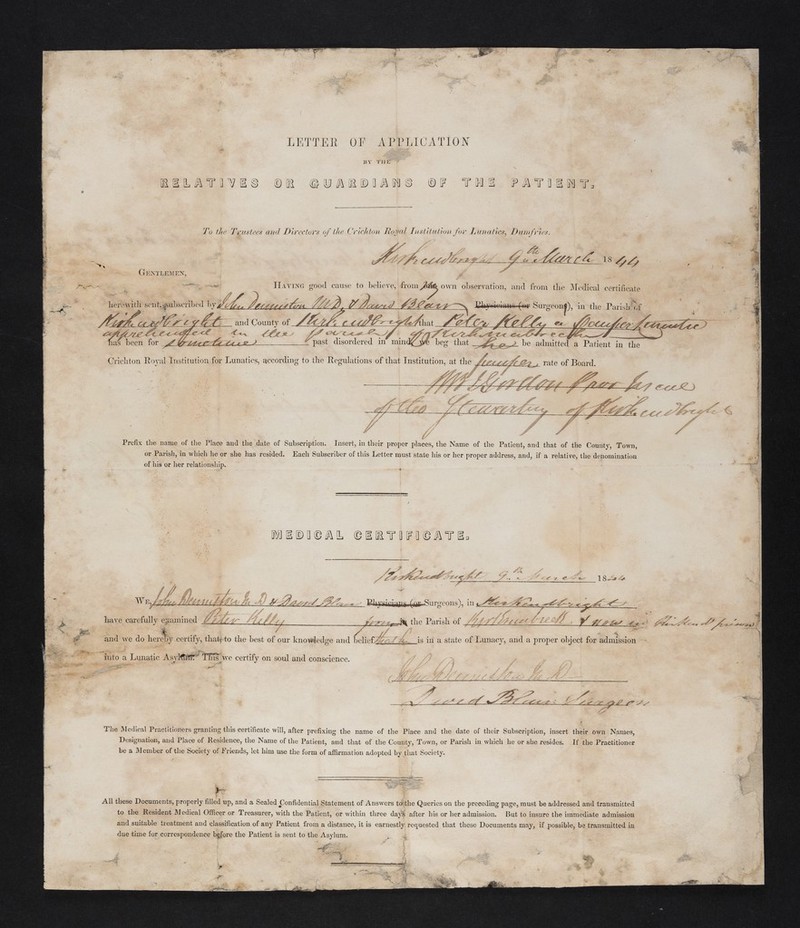 LETTER OF APPLICATION
BY THE
RELATIVES OR GUARDIANS OF THE PATIENT.
To the Trustees and Directors of the Crichton Royal Institution for Lunatics, Dumfries.
Kirkcudbright 9th March 1844
GENTLEMEN,
HAVING good cause to believe, from my own observation, and from the Medical certificate
herewith sent, subscribed by John Dennistoun M.D. & David Blair Physicians (or Surgeons), in the Parish of
Kirkcudbright and County of Kirkcudbright that Peter Kelly a Pauper Lunatic
apprehended in the parish of Kirkmabreck
has been for sometime past disordered in mind, We beg that he be admitted a Patient in the
Crichton Royal Institution for Lunatics, according to the Regulations of that Institution, at the pauper rate of Board.
Gordon Pror Fiscal
of the Stewartry of Kirkcudbright
Prefix the name of the Place and the date of Subscription. Insert, in their proper places, the Name of the Patient, and that of the County, Town,
or Parish, in which he or she has resided. Each Subscriber of this Letter must state his or her proper address, and, if a relative, the denomination
of his or her relationship.
MEDICAL CERTIFICATE.
Kirkcudbright 9th March 1844
WE, John Dennistoun M.D & David Blair Physicians (or Surgeons), in Kirkcudbright
have carefully examined Peter Kelly from the Parish of Kirkmabreck & now in prison
and we do hereby certify, that, to the best of our knowledge and belief, that he is in a state of Lunacy, and a proper object for admission
into a Lunatic Asylum. This we certify on soul and conscience.
John Dennistoun M.D
David Blair Surgeon
The Medical Practitioners granting this certificate will, after prefixing the name of the Place and the date of their Subscription, insert their own Names,
Designation, and Place of Residence, the Name of the Patient, and that of the County, Town, or Parish in which he or she resides. If the Practitioner
be a Member of the Society of Friends, let him use the form of affirmation adopted by that Society.
All these Documents, properly filled up, and a Sealed Confidential Statement of Answers to the Queries on the preceding page, must be addressed and transmitted
to the Resident Medical Officer or Treasurer, with the Patient, or within three days after his or her admission. But to insure the immediate admission
and suitable treatment and classification of any Patient from a distance, it is earnestly requested that these Documents may, if possible, be transmitted in
due time for correspondence before the Patient is sent to the Asylum.